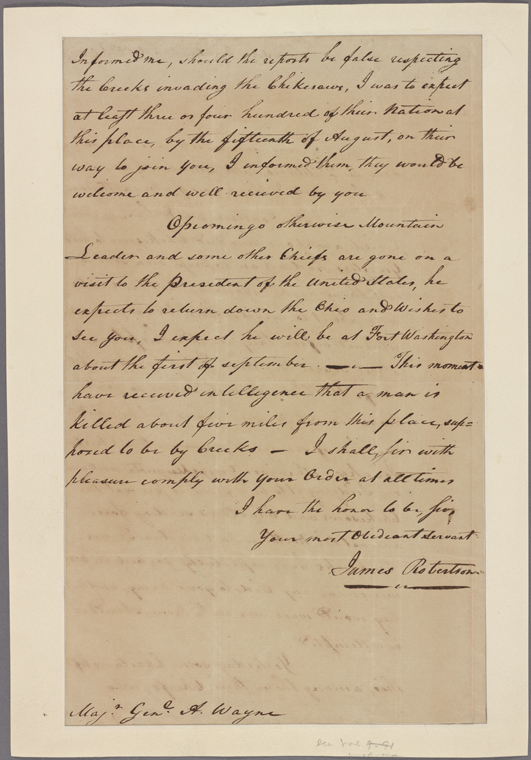 Informed me, should the reports be false respecting
the Creeks invading the Chikesaws, I was to expect
at least three or four hundred of their Nation at
this place, by the fifteenth of August, on their
way to join you, I informed them, they would be
welcome and well recieved by you
Opeomingo otherwise Mountain
Leader and some other Chiefs are gone on a
visit to the President of the United States, he
expects to return down the Ohio and Wishes to
see you, I expect he will be at Fort Washington
about the first of september. — This moment
have received intellegence that a man is
killed about five miles from this place, sup=
posed to be by Creeks — I shall, sir with
pleasure comply with your Order at all times
I have the honor to be, sir,
Your most Obedeant servant
James Robertson
Majr. Genl. A. Wayne
see vol